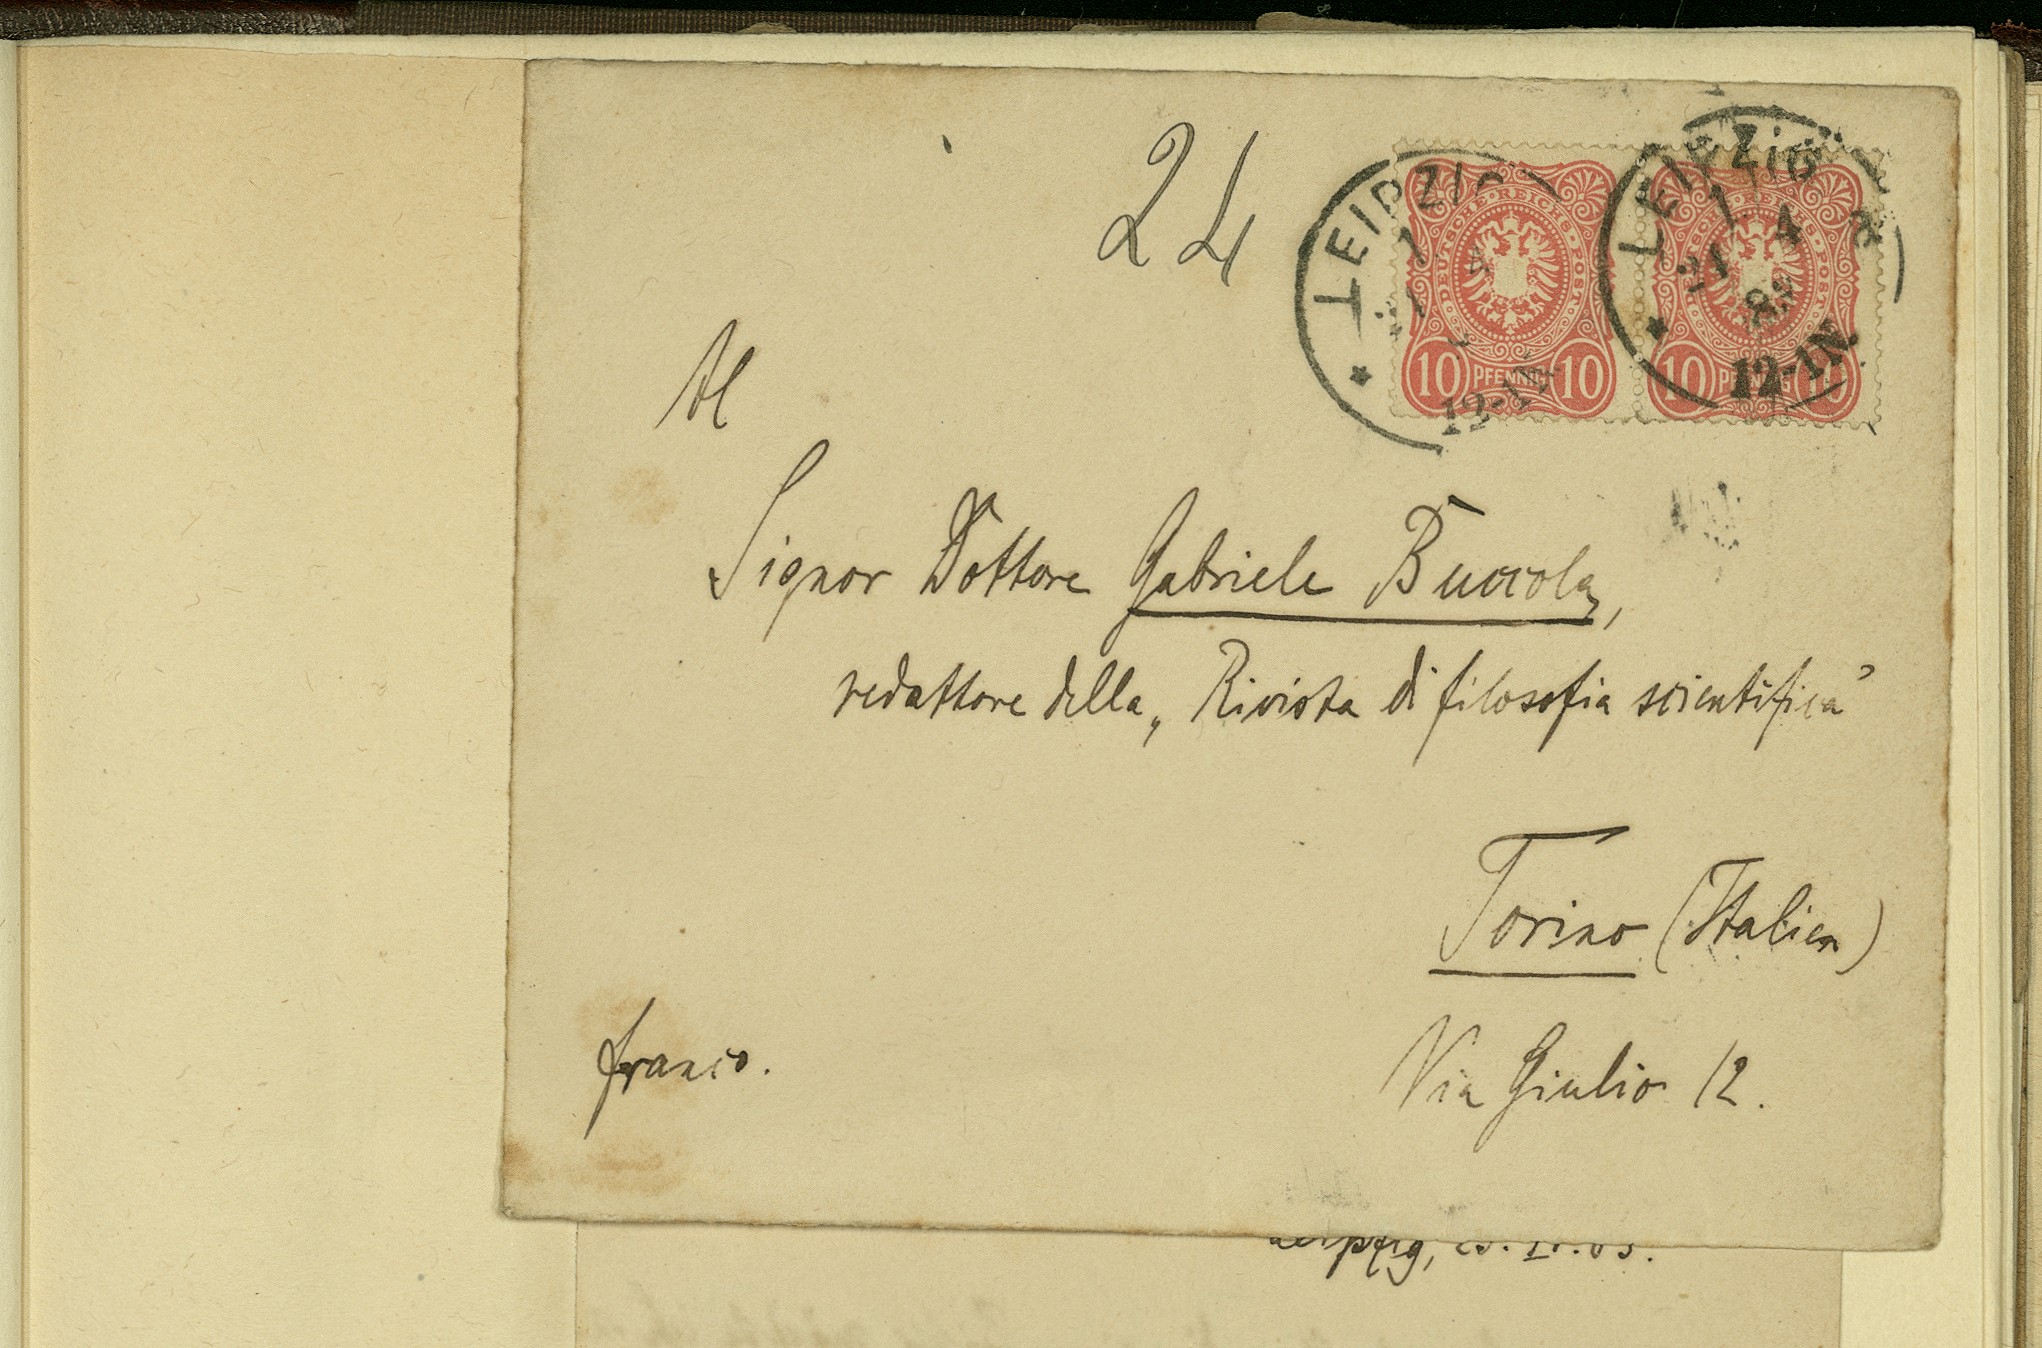 24
LEIPZIG
LEIPZIG
1.
21 4
8
12-1N.
12-1N.
DEUTSCHE·REICHS·POST
10 PFENNIG 10
10 PFENNIG 10
Al
Signor Dottore Gabriele Buccola,
redattore della „Rivista di filosofia scientifica"
Torino (Italien)
franco.
Via Giulio 12.
Leipzig,